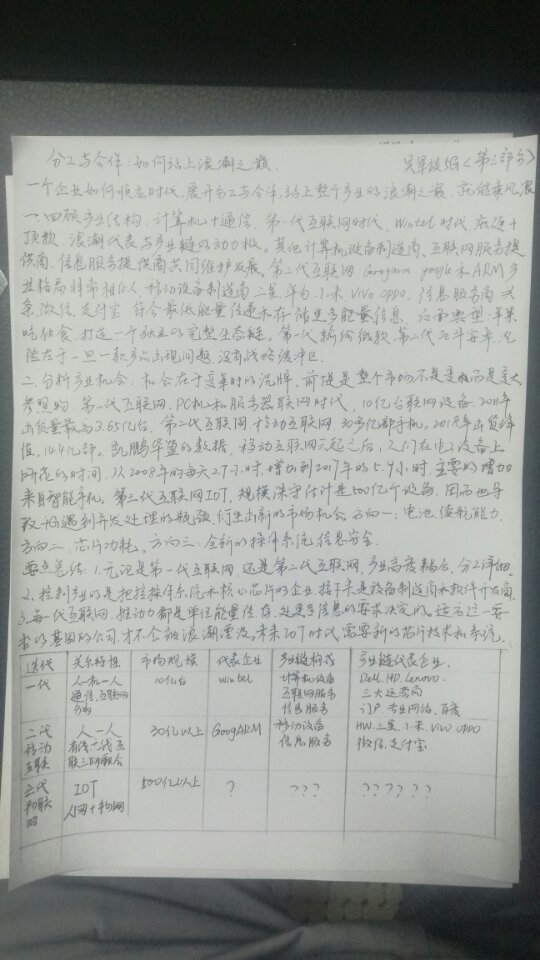 分工与合作:如何站上浪潮之巅. 吴军谈5G(第三部分)
一个企业如何顺应时代,展开分工与合作,站上整个产业的浪潮之巅,就能乘风浪
一、四硕产业结构:计算机+通信. 第一代互联网时代,Wintel时代
顶款,浪潮代表与产业链的动力极,其他计算机设备制造商、互联网服务提
供商、信息服务提供商共同维护发展。第二代互联网 Googarm google和ARM 产
业格局非常相似,移动设备制造商三星、华为、小米、VIVO OPPO. 信息服务商
微信、支付宝. 符合最低能量传递永存储更多能量信息. 苹果
吃独食,打造一个独立的完整生态链。第一代输给微软,第二代 安卓,风
险在于一旦一款产品出现问题,没有战略缓冲区
二、分析产业机会:机会在于变革时的洗牌,前提是整个市场不是变
参照物 第一代互联网、PC机和服务器联网时代,10亿台联网设备、2011年
出货量最高3.65亿台. 第二代互联网 移动互联网 30多亿部手机。2018年出货峰
值,14.4亿部。凯鹏华盈的数据,移动互联网兴起之后,人们在电子设备上
所花的时间,从2008年的每天2.7小时,增加到2017年的5.9小时,主要的增加
来自智能手机。第三代互联网IOT,规模保守估计是500亿个设备,因而也导
致相遇到开发处理的瓶颈,衍生出新的市场机会,方向一:电池,续航能力.
方向二:芯片功耗。方向三:全新的操作系统,信息安全.
要点总结:1.无论是第一代互联网,还是第二代互联网,产业高度黏合,分工详细
2.控制产业的是把控操作系统和核心芯片的企业,接下来是设备制造商和软件开发商
3.每一代互联网,推动力都是单位能量传、存、处更多信息的要求决定的。适合这一要
求的基因的公司,才不会被浪潮湮没。未来IOT时代,需要新的芯片技术和系统.
迭代 关系特性 市场规模 代表企业 产业链构成 产业链代表企业、
一代 人一机一人 通信、互联网分离 10亿台 wintel 计算机设备 互联网服务 信息服务 Dell.HP.Lenovo. 三大运营商 门户、专业网站、百度
二代 移动互联 人一人 有线、一代互联三网融合 30亿以上 GoogARM 移动设备 信息服务 HW.三星.小米.VIVO.OPPO 微信.支付宝
三代 物联网 IOT 人网+物网 500亿以上 ? ??? ??????